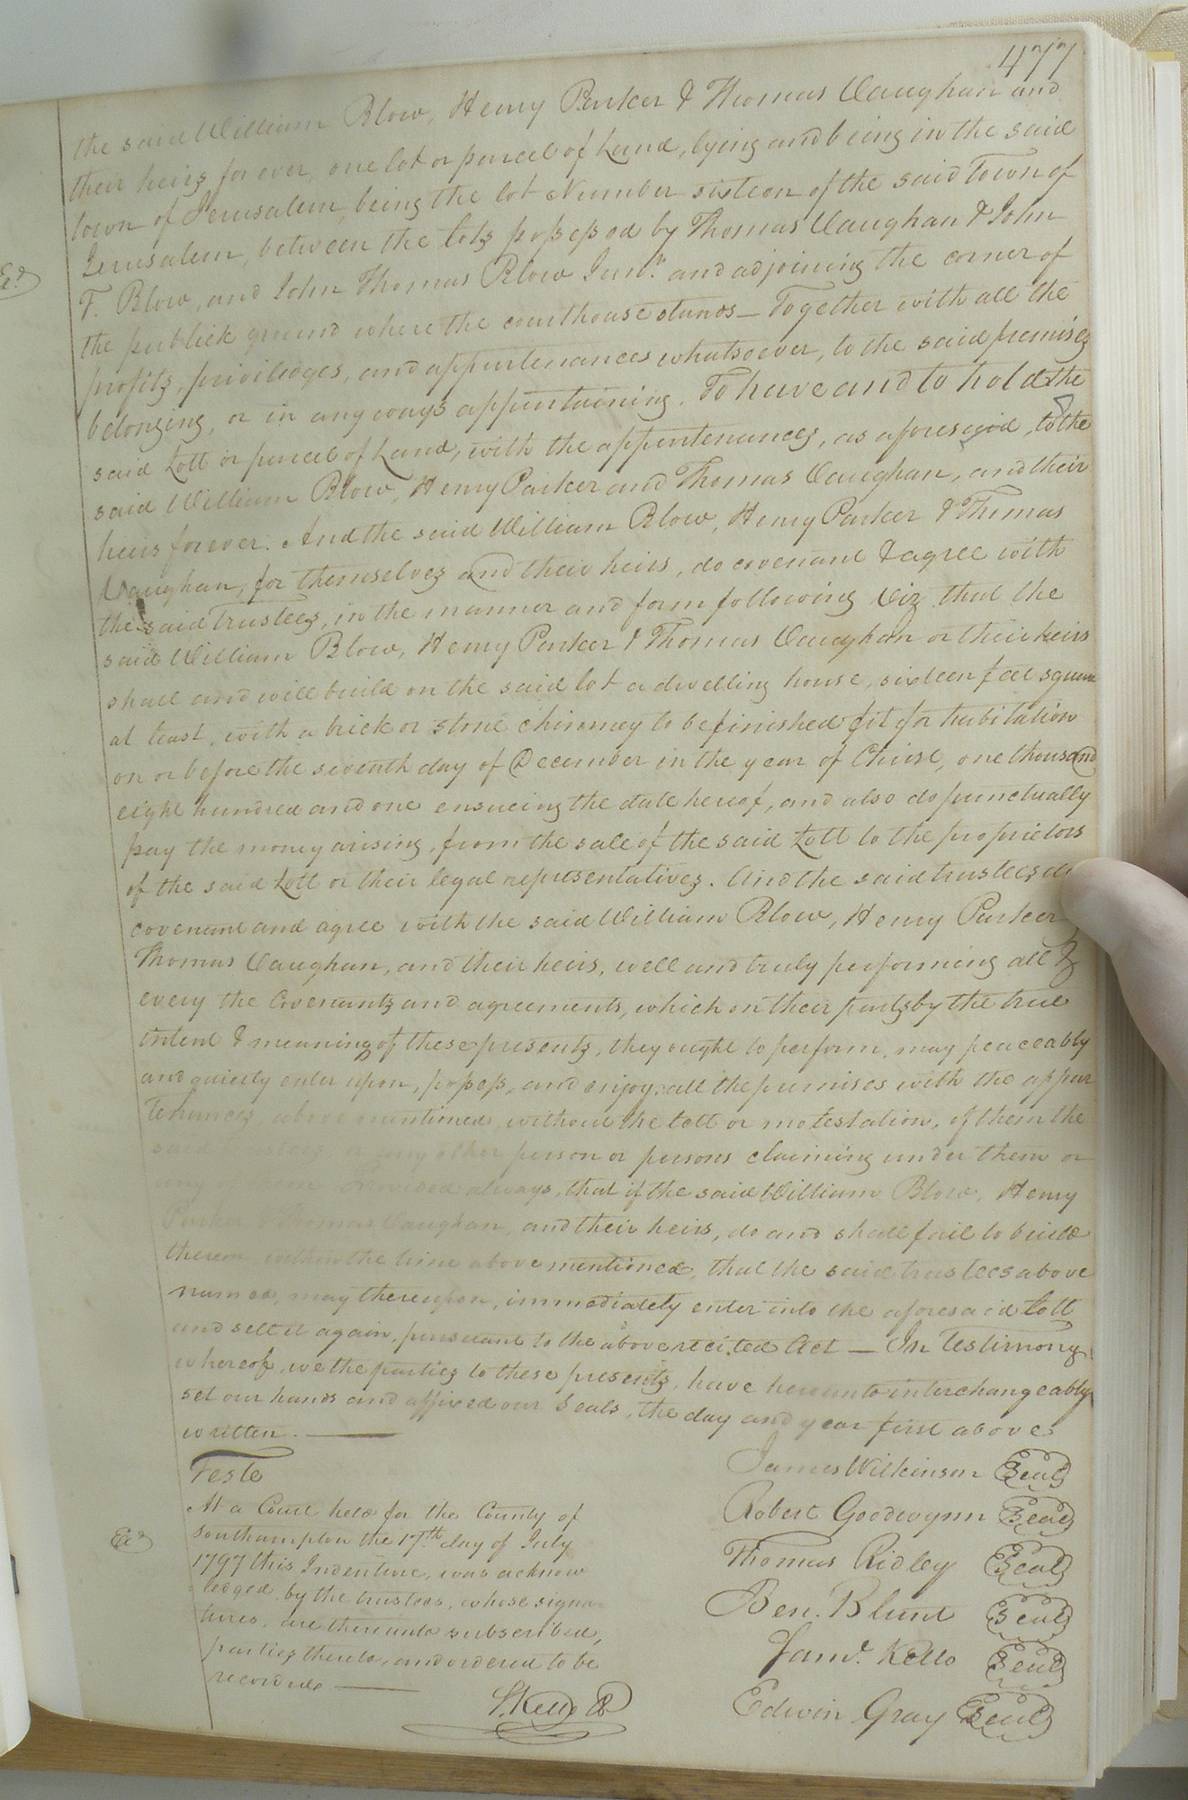 477
the said William Blow, Henry Parker & Thomas Vaughan and
their heirs for ever, one lot or parcel of Land, lying and being in the said
town of Jerusalem, being the lot Number sixteen of the said Town of
Jerusalem, between the lots possessed by Thomas Vaughan & John
T. Blow, and John Thomas Blow Junr. and adjoining the corner of
the publick ground where the courthouse stands — Together with all the
profits, priviledges, and appurtenances whatsoever, to the said premises
belonging, or in any ways appurtaining. To have and to hold the
said Lott or parcel of Land, with the appurtenances, as aforesaid, to the
said William Blow, Henry Parker and Thomas Vaughan, and their
heirs forever. And the said William Blow, Henry Parker & Thomas
Vaughan, for themselves and their heirs, do covenant & agree with
the said Trustees, in the manner and form following Viz. that the
said William Blow, Henry Parker & Thomas Vaughan or their heirs
shall and will build on the said lot a dwelling house, sixteen feet square
at least, with a brick or stone chimney to be finished fit for habitation
on or before the seventh day of December in the year of Christ, one thousand
eight hundred and one ensueing the date hereof, and also do punctually
pay the money arising, from the sale of the said Lott to the proprietors
of the said Lott or their legal representatives. And the said trustees do
covenant and agree with the said William Blow, Henry Parker
Thomas Vaughan, and their heirs, well and truly performing all &
every the Covenants and agreements, which on their parts by the true
intent & meaning of these presents, they ought to perform, may peaceably
and quietly enter upon, possess, and enjoy all the premises with the appur
tenances above mentioned without the lett or molestation, of them the
said or any other person or persons claiming under them or
any provided always, that if the said William Blow, Henry
Parker & Thomas Vaughan, and their heirs, do and shall fail to build
thereon within the time above mentioned, that the said trustees above
named, may thereupon, immediately enter into the aforesaid Lott
and sell it again, pursuant to the above recited Act — In Testimony
whereof, we the parties to these presents, have hereunto interchangeably
set our hands and affixed our Seals, the day and year first above
written. —
Teste
James Wilkinson Seal
Robert Goodwynn Seal
Thomas Ridley Seal
Ben. Blunt Seal
Saml. Kello Seal
Edwin Gray Seal
At a Court held for the County of
Southampton the 17th day of July
1797 this Indenture, was acknow
ledged by the trustees, whose signa-
tures, are thereunto subscribed,
parties thereto, and ordered to be
recorded —
S. Kello
Exd
Exd